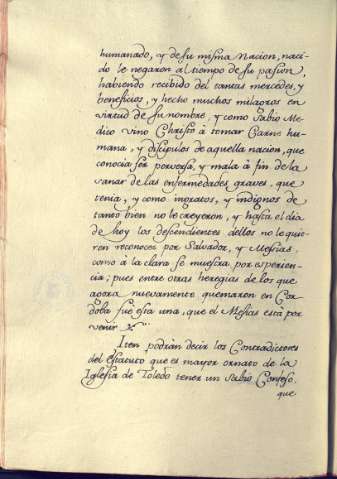 humanado, y de su misma Nacion, naci-
do le negaron al tiempo de su pasion,
habiendo recibido del tantas mercedes, y
beneficios, y hecho muchos milagros en
virtud de su nombre, y como Sabio Me-
dico vino Christo à tomar Carne hu-
mana, y discipulos de aquella nacion, que
conocia ser perversa, y mala à fin de la
sanar de las enfermedades graves, que
tenia, y como ingratos, y indignos de
tanto bien no le creyeron, y hasta el dia
de hoy los descendientes dellos no le quie-
ren reconocer por Salvador, y Mesias,
como à la clara se muestra por esperien-
cia; pues entre otras heregias de los que
agora nuevamente quemaron en Cor-
doba fué esta una, que el Mesias está por
venir
Iten podrán decir los Contradictores
del Estatuto que es mayor ornato de la
Iglesia de Toledo tener un Sabio Confeso,
que